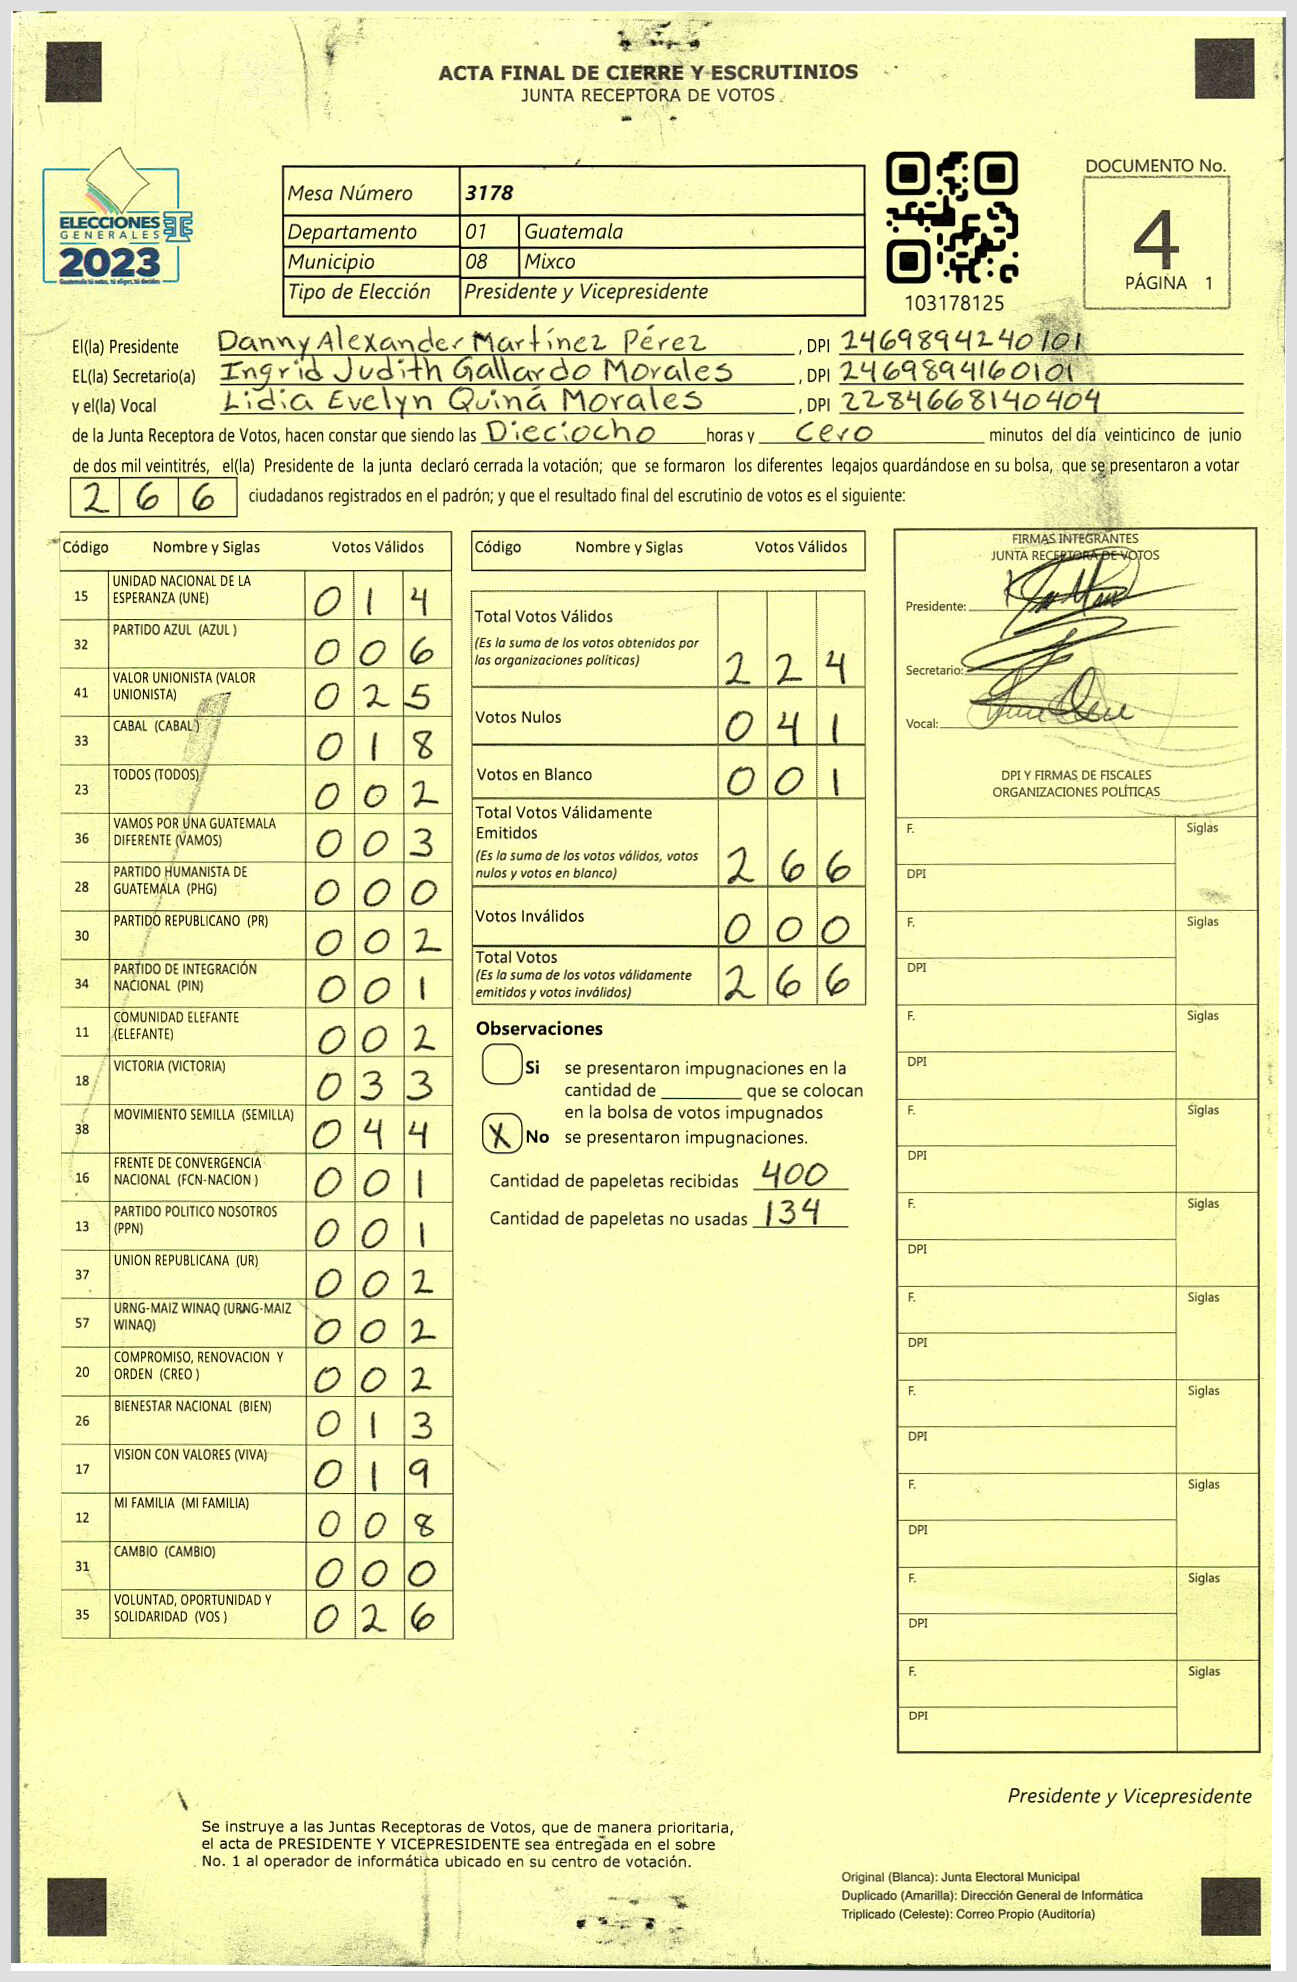 ACTA FINAL DE CIERRE Y ESCRUTINIOS
JUNTA RECEPTORA DE VOTOS
ELECCIONES
GENERALES
2023
Mesa Número 3178
Departamento 01 Guatemala
Municipio 08 Mixco
Tipo de Elección Presidente y Vicepresidente
103178125
DOCUMENTO No.
4
PÁGINA 1
El(la) Presidente Danny Alexander Martínez Pérez, DPI 2469894240101
EL(la) Secretario(a) Ingrid Judith Gallardo Morales, DPI 2469894160101
y el(la) Vocal Lidia Evelyn Quiná Morales, DPI 2284668140404
de la Junta Receptora de Votos, hacen constar que siendo las Dieciocho horas y cero minutos del día veinticinco de junio
de dos mil veintitrés, el(la) Presidente de la junta declaró cerrada la votación; que se formaron los diferentes legajos guardándose en su bolsa, que se presentaron a votar
266 ciudadanos registrados en el padrón; y que el resultado final del escrutinio de votos es el siguiente:
Código Nombre y Siglas Votos Válidos
15 UNIDAD NACIONAL DE LA ESPERANZA (UNE) 014
32 PARTIDO AZUL (AZUL ) 006
41 VALOR UNIONISTA (VALOR UNIONISTA) 025
33 CABAL (CABAL ) 018
23 TODOS (TODOS) 002
36 VAMOS POR UNA GUATEMALA DIFERENTE (VAMOS) 003
28 PARTIDO HUMANISTA DE GUATEMALA (PHG) 000
30 PARTIDO REPUBLICANO (PR) 002
34 PARTIDO DE INTEGRACIÓN NACIONAL (PIN) 001
11 COMUNIDAD ELEFANTE (ELEFANTE) 002
18 VICTORIA (VICTORIA) 033
38 MOVIMIENTO SEMILLA (SEMILLA) 044
16 FRENTE DE CONVERGENCIA NACIONAL (FCN-NACION ) 001
13 PARTIDO POLITICO NOSOTROS (PPN) 001
37 UNION REPUBLICANA (UR) 002
57 URNG-MAIZ WINAQ (URNG-MAIZ WINAQ) 002
20 COMPROMISO, RENOVACION Y ORDEN (CREO ) 002
26 BIENESTAR NACIONAL (BIEN) 013
17 VISION CON VALORES (VIVA) 019
12 MI FAMILIA (MI FAMILIA) 008
31 CAMBIO (CAMBIO) 000
35 VOLUNTAD, OPORTUNIDAD Y SOLIDARIDAD (VOS ) 026
Código Nombre y Siglas Votos Válidos
Total Votos Válidos
(Es la suma de los votos obtenidos por
las organizaciones políticas) 224
Votos Nulos 041
Votos en Blanco 001
Total Votos Válidamente
Emitidos
(Es la suma de los votos válidos, votos
nulos y votos en blanco) 266
Votos Inválidos 000
Total Votos
(Es la suma de los votos válidamente
emitidos y votos inválidos) 266
Observaciones
Si se presentaron impugnaciones en la
cantidad de ________ que se colocan
en la bolsa de votos impugnados
X No se presentaron impugnaciones.
Cantidad de papeletas recibidas 400
Cantidad de papeletas no usadas 134
FIRMAS INTEGRANTES
JUNTA RECEPTORA DE VOTOS
Presidente:
Secretario:
Vocal:
DPI Y FIRMAS DE FISCALES
ORGANIZACIONES POLÍTICAS
F. Siglas
DPI
F. Siglas
DPI
F. Siglas
DPI
F. Siglas
DPI
F. Siglas
DPI
F. Siglas
DPI
F. Siglas
DPI
F. Siglas
DPI
F. Siglas
DPI
F. Siglas
DPI
Presidente y Vicepresidente
Se instruye a las Juntas Receptoras de Votos, que de manera prioritaria,
el acta de PRESIDENTE Y VICEPRESIDENTE sea entregada en el sobre
No. 1 al operador de informática ubicado en su centro de votación.
Original (Blanca): Junta Electoral Municipal
Duplicado (Amarilla): Dirección General de Informática
Triplicado (Celeste): Correo Propio (Auditoría)